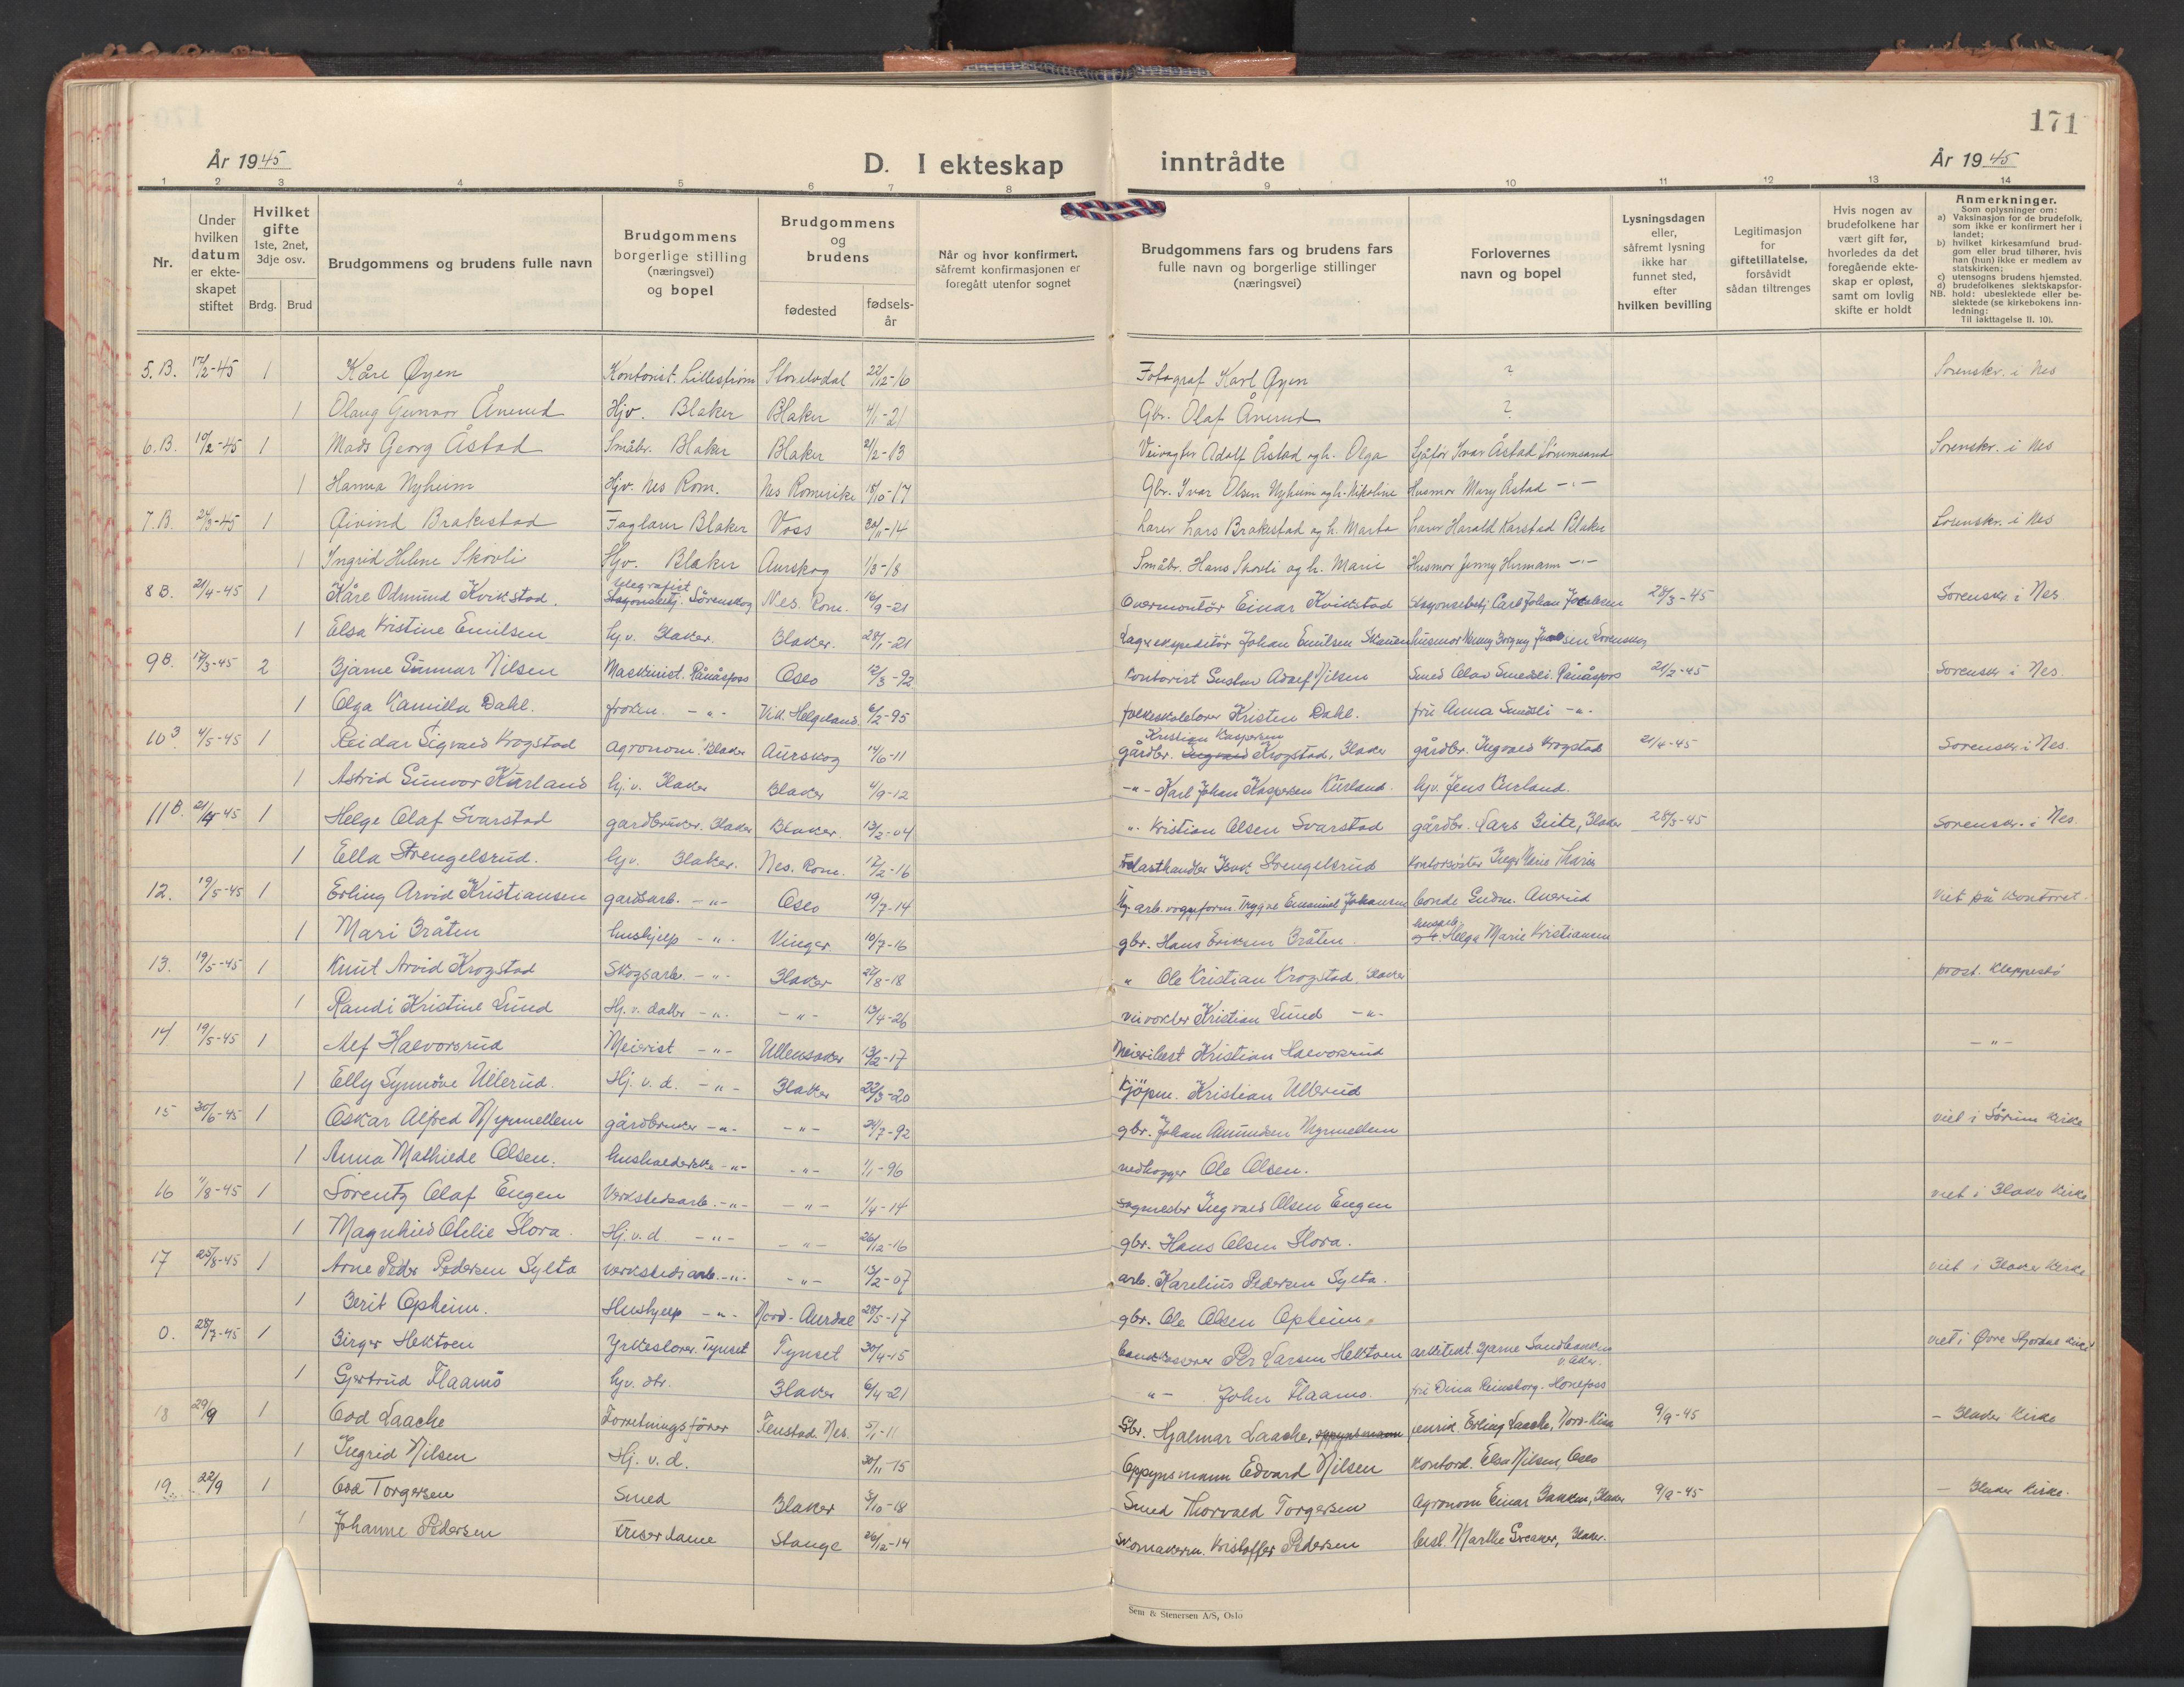 171
År 1945
D. I ekteskap inntrådte
År 1945
1 2 3 4 5 6 7 8 9 10 11 12 13 14
Nr.
Under hvilken datum er ekteskapet stiftet
Hvilket gifte 1ste, 2net, 3dje osv.
Brdg. Brud
Brudgommens og brudens fulle navn
Brudgommens borgerlige stilling (næringsvei) og bopel
Brudgommens og brudens
fødested
fødsels-år
Når og hvor konfirmert, såfremt konfirmasjonen er foregått utenfor sognet
Brudgommens fars og brudens fars fulle navn og borgerlige stillinger (næringsvei)
Forlovernes navn og bopel
Lysningsdagen eller, såfremt lysning ikke har funnet sted, efter hvilken bevilling
Legitimasjon for giftetillatelse, forsåvidt sådan tiltrenges
Hvis nogen av brudefolkene har vært gift før, hvorledes da det foregående ekteskap er opløst, samt om lovlig skifte er holdt
Anmerkninger.
Som oplysninger om:
a) Vaksinasjon for de brudefolk, som ikke er konfirmert her i landet;
b) hvilket kirkesamfund brudgom eller brud tilhører, hvis han (hun) ikke er medlem av statskirken;
c) utensogns brudens hjemsted.
d) brudefolkenes slektskapsforhold: ubeslektede eller beslektede (se kirkebokens innledning:
NB. Til iakttagelse II. 10).
5.B. 17/2-45 1 Kåre Øyen Kontorist. Lillestrøm Storelvdal 22/12-16 Fotograf Karl Øyen ? Sorenskr. i Nes
1 Olaug Gunvor Ånerud Hjv. Blaker Blaker 4/1-21 Gbr. Olaf Ånerud ?
6.B. 10/2-45 1 Mads Georg Åstad Småbr. Blaker Blaker 21/2-13 Veivogter Adolf Åstad og h. Olga Sjåfør Ivar Åstad Sørumsand Sorenskr. i Nes
1 Hanna Nyheim Hjv. Nes Rom. Nes Romerike 18/10-17 Gbr. Ivar Olsen Nyheim og h. Nikoline Husmor Mary Åstad -"-
7.B. 24/3-45 1 Øivind Brakestad Faglærer Blaker Voss 30/11-14 Lærer Lars Brakestad og h. Marta Lærer Harald Karstad Blaker Sorenskr. i Nes
1 Ingrid Helene Skovli Hjv. Blaker Aurskog 1/3-18 Småbr. Hans Skovli og h. Marie Husmor Jenny Hermann -"-
8 B. 21/4-45 1 Kåre Odmund Kvikstad. telegrafist Sørenskog Nes. Rom. 16/9-21 Overmontør Einar Kvikstad Stasjonsbetj. Carl Johan 28/3-45 Sorenskr i Nes
1 Elsa Kristine Emilsen hj.v. Blaker. Blaker. 28/1-21 Lagerekspeditør Johan Emilsen Skauen husmor
9 B. 17/3-45 2 Bjarne Gunnar Nilsen Maskinist. Rånåsfoss Oslo 12/3-92 Kontorist Gustav Adolf Nilsen Smed Olav Smedsli. Rånåsfoss 21/2-45 Sorenskr i Nes.
1 Olga Kamilla Dahl. frøken. -"- Vik. Helgeland 6/2-95 folkeskolelærer Kristen Dahl. fru Anna Smedsli -"-
10 B 4/5-45 1 Reidar Sigvald Krogstad Agronom. Blaker Aurskog 14/6-11 Kristian Kaspersen gårdbr. Ingvald Krogstad, Blaker gårdbr. Ingvald Krogstad 21/4-45 Sorenskr i Nes.
1 Astrid Gunvor Kurland hj.v. Blaker Blaker 4/9-12 -"- Karl Johan Kaspersen Kurland. hjv. Jens Kurland.
11 B. 21/4 45 1 Helge Olaf Svarstad gårdbruker. Blaker Blaker. 13/2-04 ". Kristian Olsen Svarstad gårdbr. Lars Beite, Blaker 28/3-45 Sorenskr. i Nes
1 Ella Strengelsrud. hjv. Blaker. Nes. Rom. 17/2-16 Trelasthandler Isak Strengelsrud Inger Marie
12. 19/5-45 1 Erling Arvid Kristiansen gårdsarb. -"- Oslo 19/7-14 arb. vognform. Trygve Emanuel Johansen bonde Gudm. Anerud Viet på kontoret.
1 Mari Bråten hushjelp -"- Vinger 10/7-16 gbr. Hans Eriksen Bråten. Helga Marie Kristiansen
13. 19/5-45 1 Knut Arvid Krogstad Skogsarb -"- Blaker 27/8-18 " Ole Kristian Krogstad, Blaker prost. Kleppestø
1 Randi Kristine Lund Hj. v. datter -"- -"- 13/4-26 veivokter Kristian Lund -"-
14 19/5-45 1 Alf Halvorsrud Meierist -"- Ullensaker 13/2-17 Meieribest Kristian Halvorsrud -"-
1 Elly Synnøve Ullerud. Hj. v. d. -"- Blaker 22/3-20 Kjøpm. Kristian Ullerud
15 30/6-45 1 Oskar Alfred Myrmellem gårdbruker -"- -"- 24/7-92 gbr. Johan Amundsen Myrmellem viet i Sørum kirke
1 Anna Mathilde Olsen. husholderske -"- -"- 1/1-96 vedhogger Ole Olsen.
16 11/8-45 1 Lorentz Olaf Engen Verkstedsarb. -"- -"- 1/4-14 sagmester Ingvald Olsen Engen viet i Blaker kirke
1 Magnhild Otelie Slora. Hj.v.d -"- -"- 26/12-16 gbr. Hans Olsen Slora.
17 25/8-45 1 Arne Peder Pedersen Sylta verkstedsarb. -"- -"- 13/2-07 arb. Karelius Pedersen Sylta. viet i Blaker kirke
1 Berit Opheim. Hushjelp -"- Nord-Aurdal 28/5-17 gbr. Ole Olsen Opheim.
0. 28/7-45 1 Birger Hektoen Yrkeslærer. Tynset Tynset 30/4-15 Per Larsen Hektoen arkitekt. Bjarne viet i Øvre Stjørdal kirke
1 Gjertrud Flaamo hjv. dtr. Blaker 6/4-21 -"- John Flaamo. fru Dina Reinsborg. Hønefoss
18 29/9 1 Odd Laache Forretningsfører Fenstad Nes. 5/1-11 Gbr. Hjalmar Laache, oppsynsmann Erling Laache, 9/9-45 - Blaker Kirke
1 Ingrid Nilsen Hj. v. d. 30/11-15 Oppsynsmann Edvard Nilsen Kontord. Elsa Nilsen, Oslo
19. 22/9 1 Odd Torgersen Smed Blaker 3/10-18 Smed Thorvald Torgersen Agronom Einar Bakken, Blaker 9/9-45 - Blaker Kirke.
1 Johanne Pedersen Friserdame Stange 26/12-14 Skomakerm. Kristoffer Pedersen best. Marthe Greaker, Blaker.
Sem & Stenersen A/S, Oslo